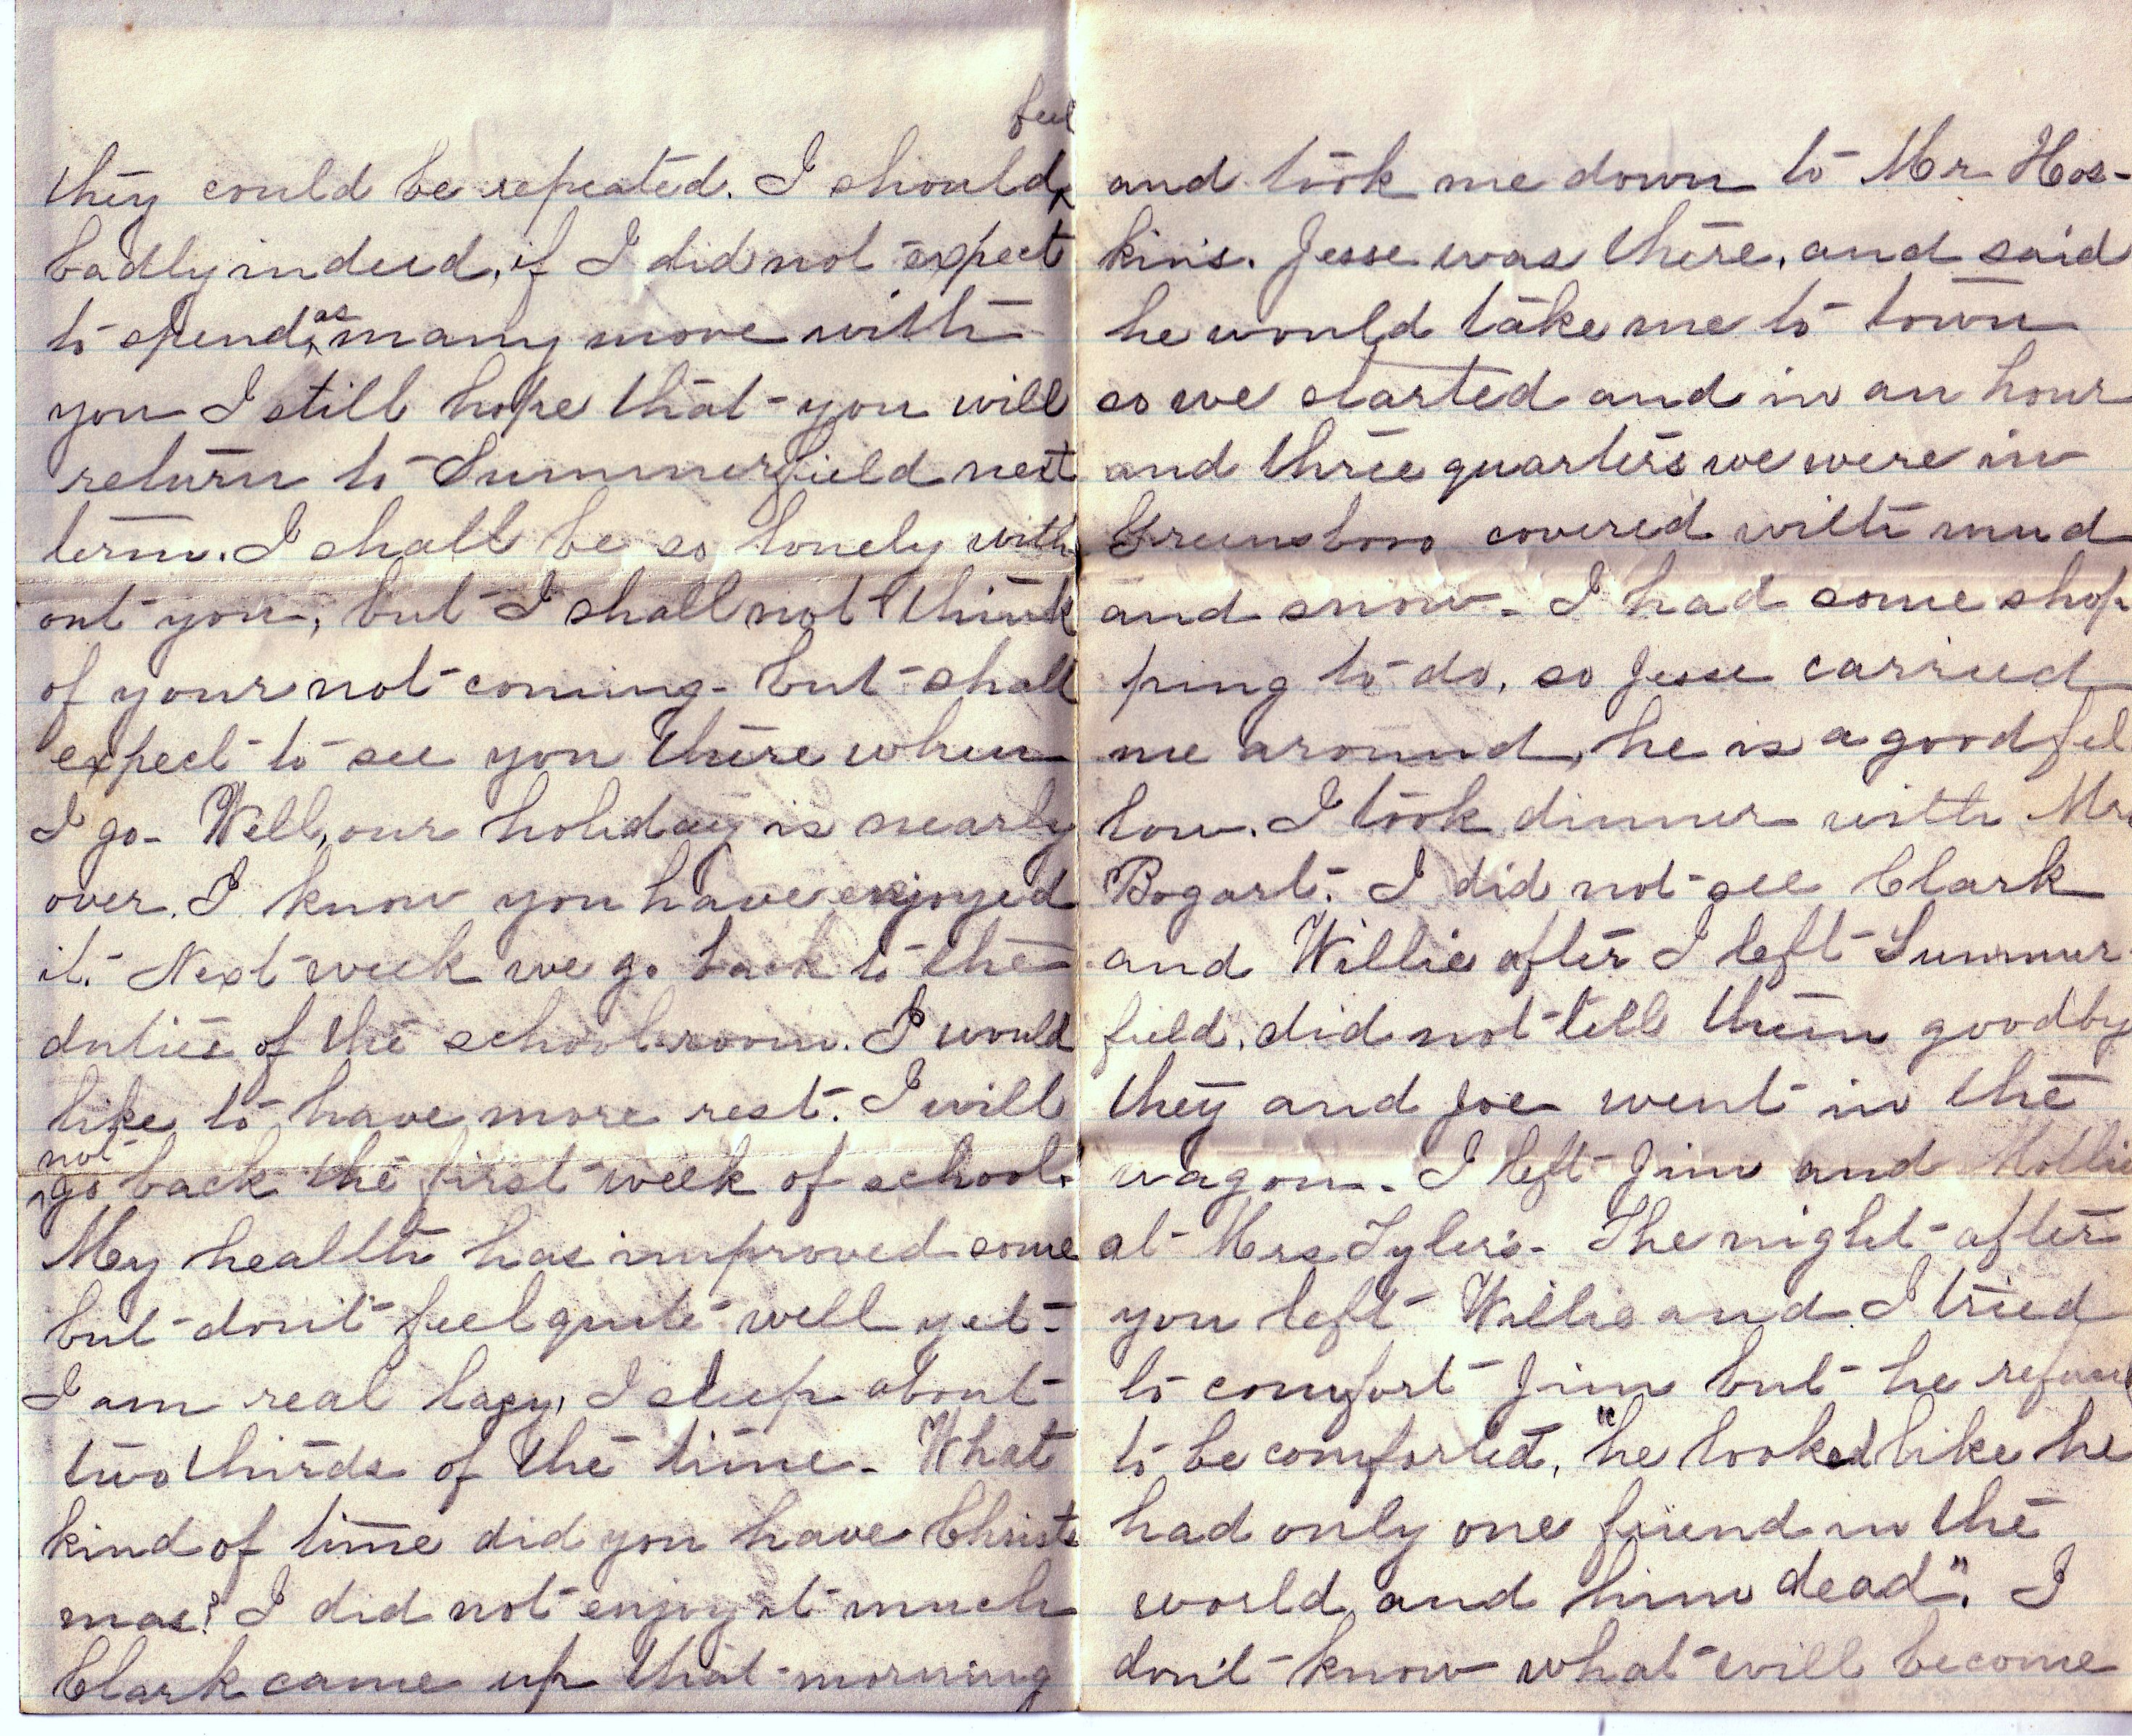 they could be repeated. I should feel
badly indeed, if I did not expect
to spend as many more with
you I still hope that you will
return to Summerfield next
term. I shall be so lonely with
out you, but I shall not think
of your not coming - but shall
expect to see you there when
I go - Well, our holiday is nearly
over. I know you have enjoyed
it. Next week we go back to the
duties of the schoolroom. I would
like to have more rest. I will
not go back the first week of school.
My health has improved some
but don't feel quite well yet -
I am real lazy, I sleep about
two thirds of the time - What
kind of time did you have Christ
mas? I did not enjoy it much
Clark came up that morning
and took me down to Mr Hos-
kin's. Jesse was there, and said
he would take me to town
so we started and in an hour
and three quarters we were in
Greensboro covered with mud
and snow - I had some shop
ping to do, so Jesse carried
me around, he is a good fel
low. I took dinner with Mrs
Bogart. I did not see Clark
and Willie after I left Summer
field, did not tell them goodby
they and Joe went in the
wagon - I left Jim and Mollie
at Mrs Tyler's - The night after
you left Willie and I tried
to comfort Jim but he refused
to be comforted, "he looked like he
had only one friend in the
world, and him dead". I
don't know what will become